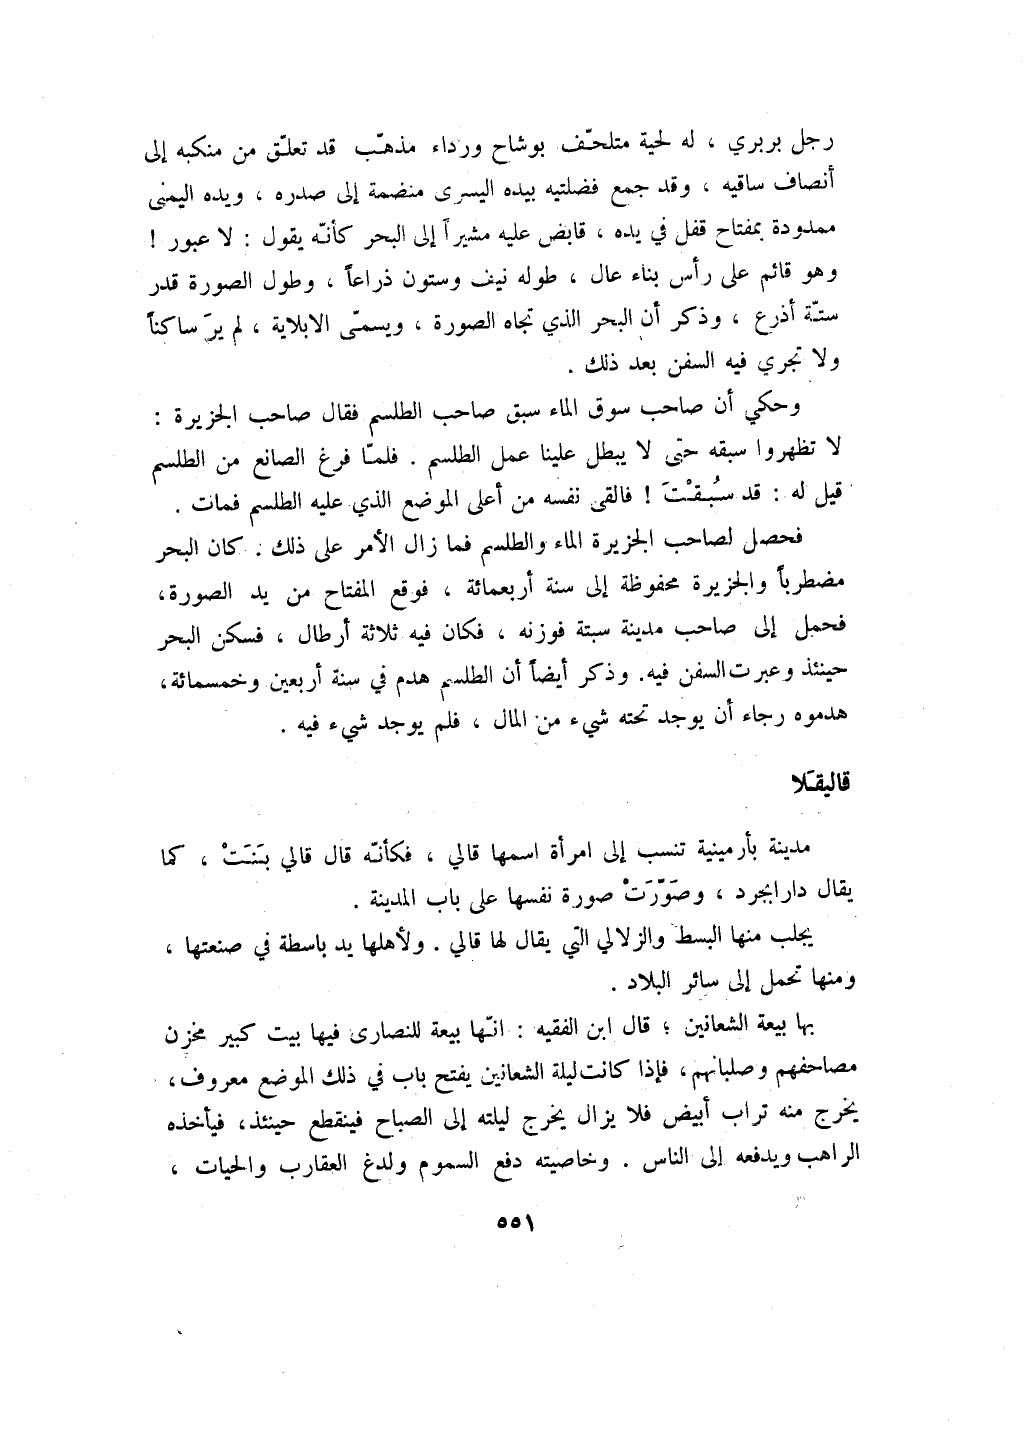 رجل بربري ، له لحية متلحّف بوشاح ورداء مذهّب قد تعلّق من منكبه إلى
أنصاف ساقيه ، وقد جمع فضلتيه بيده اليسرى منضمة إلى صدره ، ويده اليمنى
ممدودة بمفتاح قفل في يده ، قابض عليه مشيراً إلى البحر كأنّه يقول : لا عبور !
وهو قائم على رأس بناء عال ، طوله نيف وستون ذراعاً ، وطول الصورة قدر
ستّة أذرع ، وذكر أن البحر الذي تجاه الصورة ، ويسمّى الابلاية ، لم يرَ ساكناً
ولا تجري فيه السفن بعد ذلك .
وحكي أن صاحب سوق الماء سبق صاحب الطلسم فقال صاحب الجزيرة :
لا تظهروا سبقه حتى لا يبطل علينا عمل الطلسم . فلمّا فرغ الصانع من الطلسم
قيل له : قد سُبقْتَ ! فالقى نفسه من أعلى الموضع الذي عليه الطلسم فمات .
فحصل لصاحب الجزيرة الماء والطلسم فما زال الأمر على ذلك . كان البحر
مضطرباً والجزيرة محفوظة إلى سنة أربعمائة ، فوقع المفتاح من يد الصورة،
فحمل إلى صاحب مدينة سبتة فوزنه ، فكان فيه ثلاثة أرطال ، فسكن البحر
حينئذ وعبرت السفن فيه. وذكر أيضاً أن الطلسم هدم في سنة أربعين وخمسمائة،
هدموه رجاء أن يوجد تحته شيء من المال ، فلم يوجد شيء فيه .
قاليقَلا
مدينة بأرمينية تنسب إلى امرأة اسمها قالي ، فكأنّه قال قالي بَنَتْ ، كما
يقال دارابجرد ، وصَوّرَتْ صورة نفسها على باب المدينة .
يجلب منها البسط والزلالي التي يقال لها قالي . ولأهلها يد باسطة في صنعتها ،
ومنها تحمل إلى سائر البلاد .
بها بيعة الشعانين ؛ قال ابن الفقيه : انّها بيعة للنصارى فيها بيت كبير مخزن
مصاحفهم وصلبانهم، فإذا كانت ليلة الشعانين يفتح باب في ذلك الموضع معروف،
يخرج منه تراب أبيض فلا يزال يخرج ليلته إلى الصباح فينقطع حينئذ، فيأخذه
الراهب ويدفعه إلى الناس . وخاصيته دفع السموم ولدغ العقارب والحيات ،
٥٥١